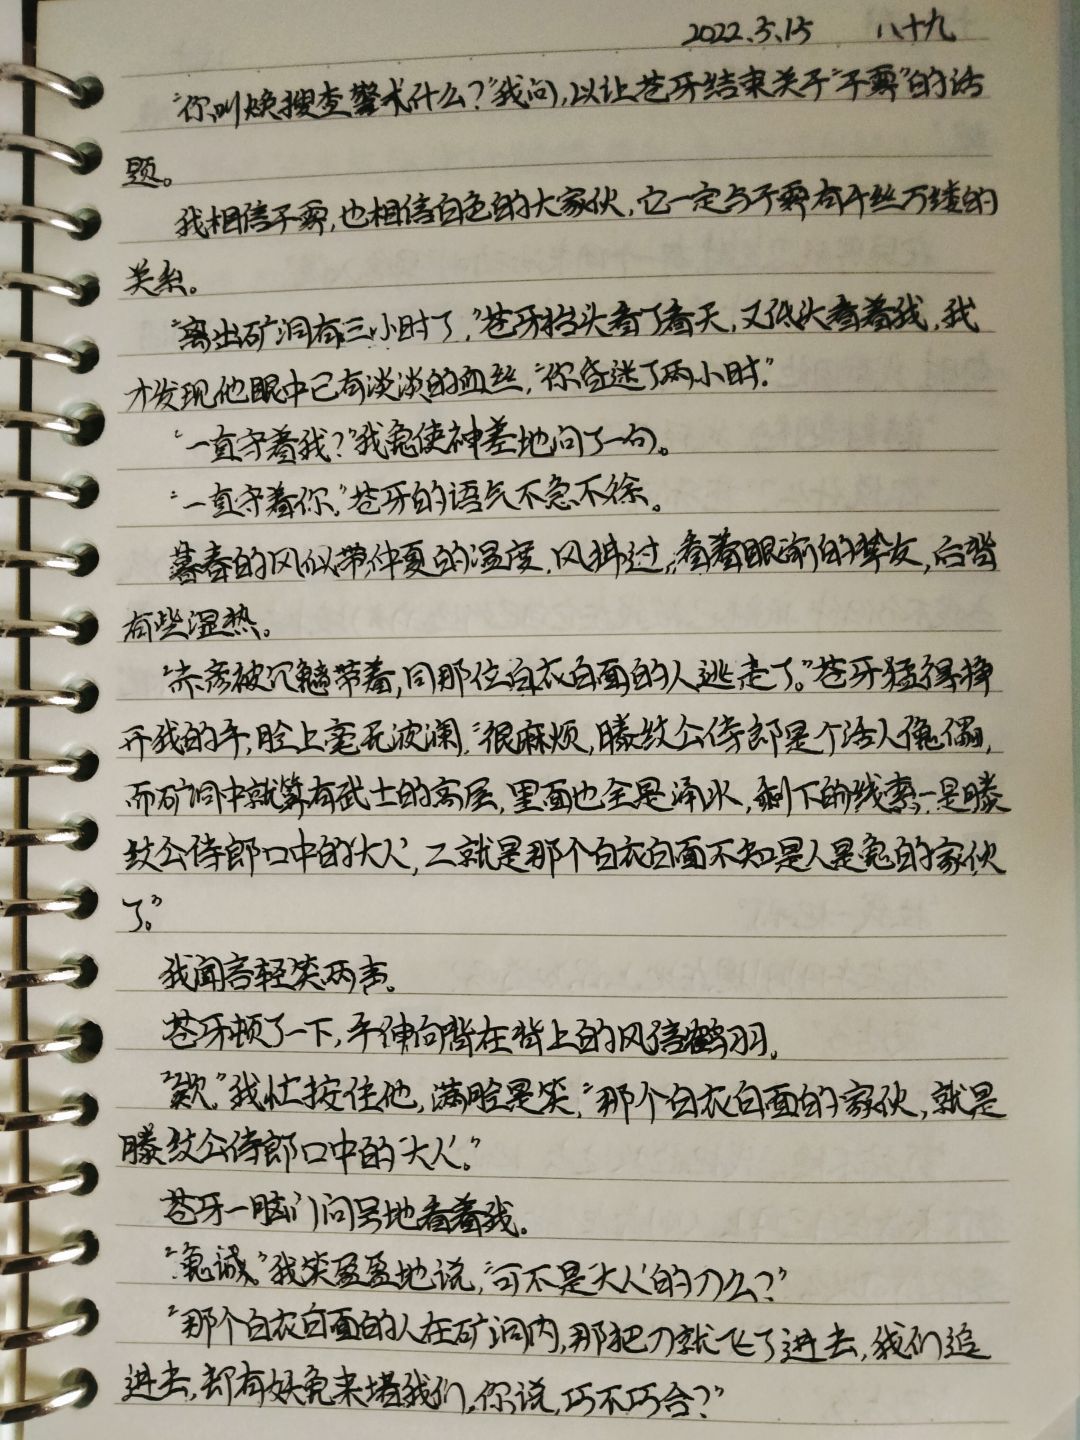 2022.5.15 八十九
“你叫焕搜查警犬什么？”我问，以让苍牙结束关于“子霁”的话
题。
我相信子霁，也相信白色的大家伙，它一定与子霁有千丝万缕的
关系。
“离出矿洞有三小时了，”苍牙抬头看了看天，又低头看着我，我
才发现他眼中已有淡淡的血丝，“你昏迷了两小时。”
“一直守着我？”我鬼使神差地问了一句。
“一直守着你。”苍牙的语气不急不徐。
暮春的风似带仲夏的温度，风拂过，看着眼前的挚友，后背
有些湿热。
“赤彦被穴魑带着，同那位白衣白面的人逃走了。”苍牙猛得挣
开我的手，脸上毫无波澜，“很麻烦，滕纹公侍郎是个活人傀儡，
而矿洞中就算有武士的寓居，里面也全是泽水，剩下的线索一是滕
纹公侍郎口中的‘大人’，二就是那个白衣白面不知是人是鬼的家伙
了。”
我闻言轻笑两声。
苍牙顿了一下，手伸向背在背上的风信鹤羽。
“欸，”我忙按住他，满脸是笑，“那个白衣白面的家伙，就是
滕纹公侍郎口中的‘大人’。”
苍牙一脑门问号地看着我。
“鬼诫，”我笑盈盈地说，“可不是‘大人’的刀么？”
“那个白衣白面的人在矿洞内，那把刀就飞了进去，我们追
进去，却有妖鬼来堵我们，你说，巧不巧合？”